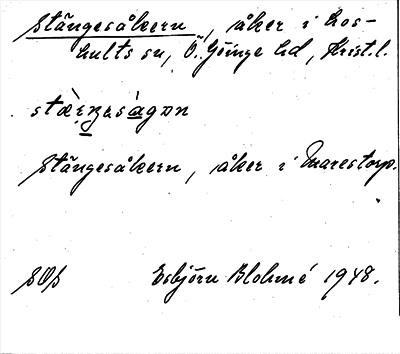 Stängesåkern, åker i Los-
hults sn, Ö. Göinge hd, Krist.l.
Stängesåkern, åker i Marestorp.
SOÄ Esbjörn Blohmé 1948.